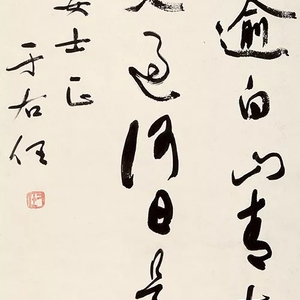 逾白山青
過何日是
女士正
于右任